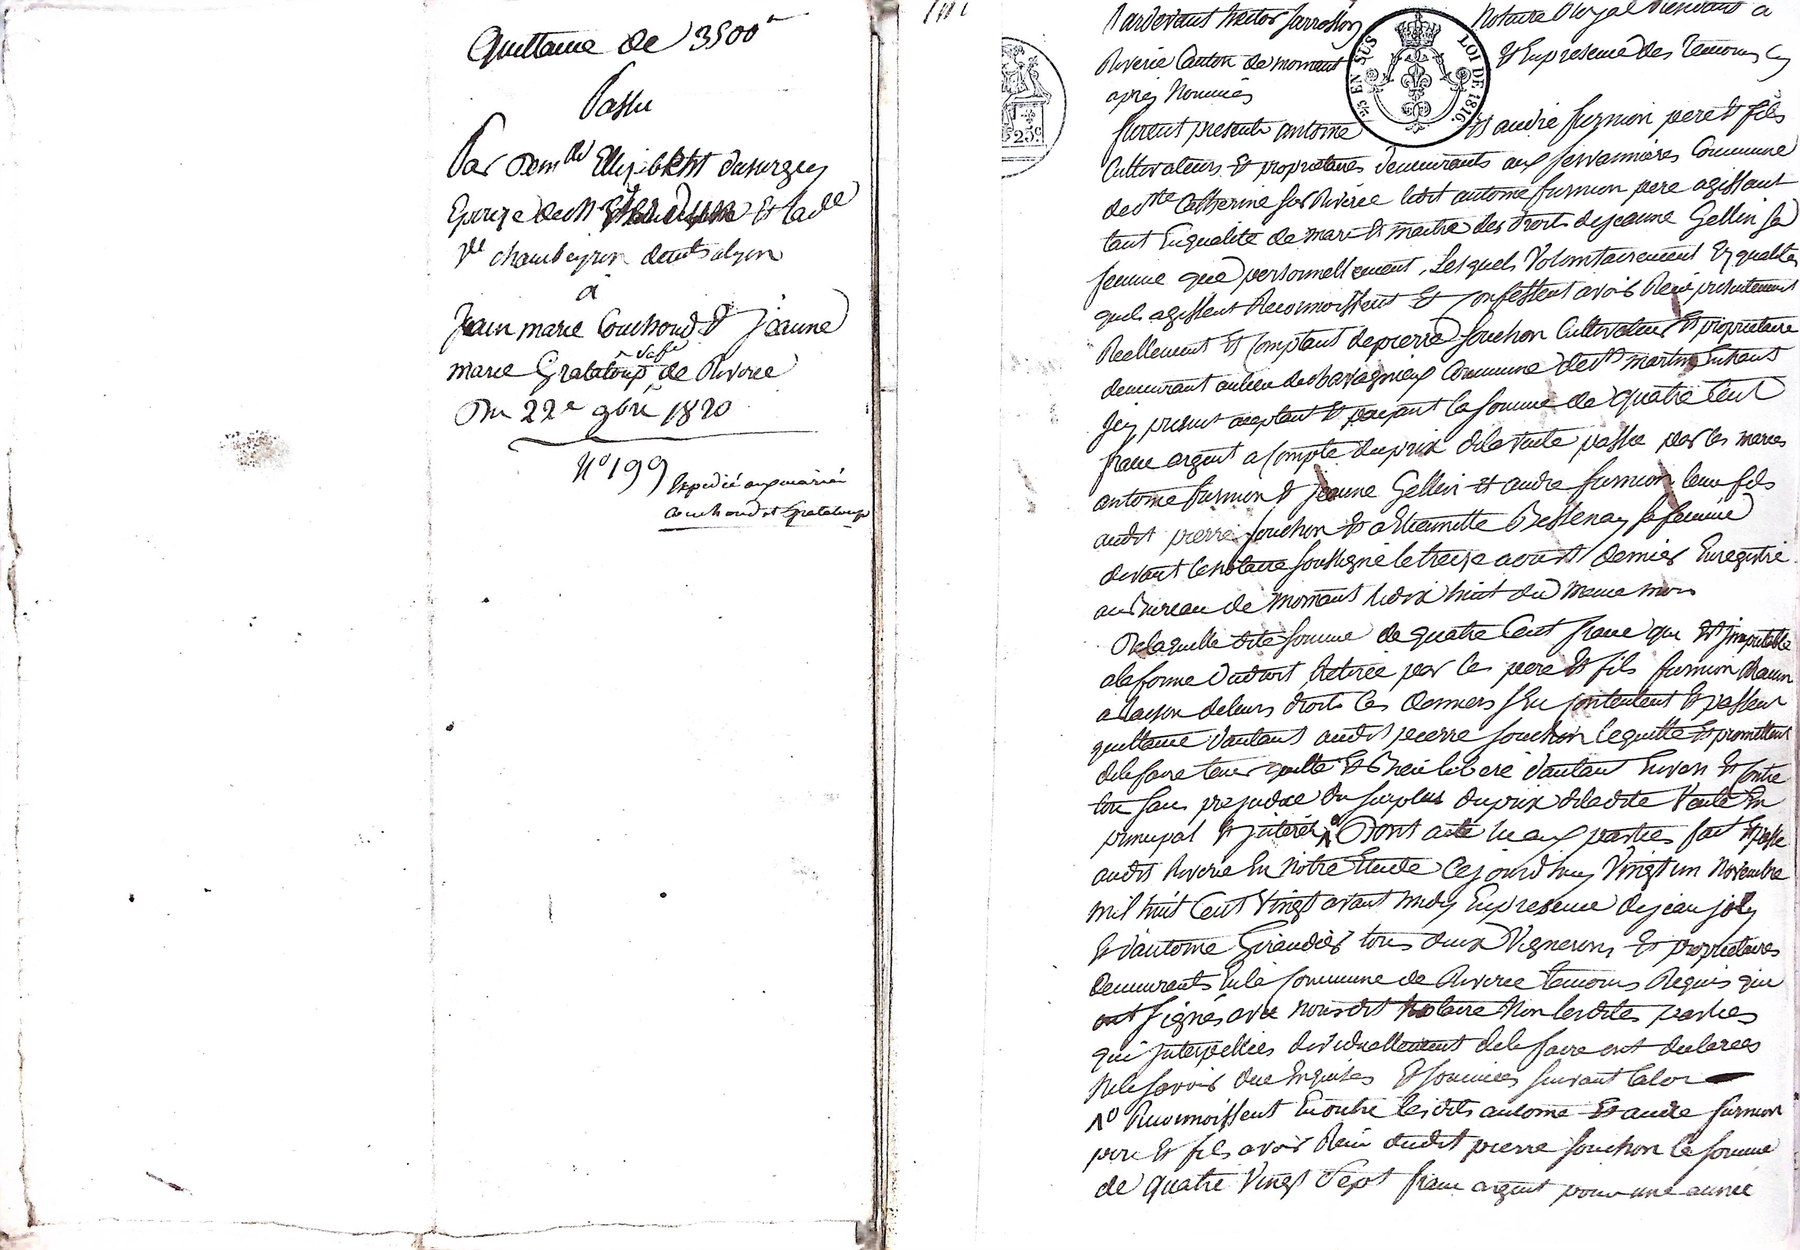 Quittance de 3500 #
Passee
Par Dem.lle Ellizabeth dasurgey
Epouze de Mr Et lad.lle
Ve chambeyron deurts alyon
a
Jean marie Couchoud & jeanne
marie Grataloup sa fe de Riverie
Du 22e 9bre 1820
No 199
Expedié aux mariés
couchoud et Grataloup
Pardevant hector Jarrosson Notaire Royal Residant a
Riverie Canton de mornant & En presence des Temoins cy
apres Nommés
furent presents antoine & andré furnion pere & fils
Cultivateurs & proprietaires demeurants aux servannieres Commune
de Ste Catherine sur Riverie ledit antoine furnion pere agissant
tant En qualité de mari & maitre des droits de jeanne Gellin sa
femme que personnellement, Lesquels Volontairement Es qualités
quils agissent Reconnoissent & Confessent avoir Recu presentement
Reellement & Comptant de pierre souchon Cultivateur & proprietaire
demeurant au lieu de chavagnieux Commune de St martin En haut
Jcy present acceptant & payant la somme de quatre Cent
franc argent a Compte du prix de la Vente passee par les maries
antoine furnion & jeanne Gellin & andre furnion leur fils
audit pierre souchon & a Etiennette Bessenay sa femme
devant le notaire soussigné le treize aoust dernier Enregistré
au Bureau de mornant le dix huit du meme mois
De laquelle dite somme de quatre Cent franc qui Est jmputable
a la forme du droit Retirée par les pere & fils furnion chacun
a Raison de leurs droits Ces derniers s'En Contentent & passent
quittance d'autant audit pierre souchon le quitte & promettent
de le faire tenir quitte & Bien liberé d'autant Envers & Contre
tous sans prejudice du surplus du prix de ladite Vente En
principal & jnterêt Dont acte lu aux parties fait & passé
audit Riverie En Notre Etude Cejourd'huy Vingt un Novembre
mil huit Cent Vingt avant midy En presence de jean joly
& d'antoine Giraudier tous deux Vignerons & proprietaires
Demeurants En la Commune de Riverie temoins Requis qui
ont signés avec nousdit Notaire Non lesdites parties
qui jnterpellées individuellement de le faire ont declarées
Ne le savoir due Enquises & sommées suivant la loi
No Reconnoissent En outre lesdits antoine & andré furnion
pere & fils avoir Recu dudit pierre souchon la somme
de quatre Vingt Sept franc argent pour une année
25 EN SUS LOI DE 1816.
25c